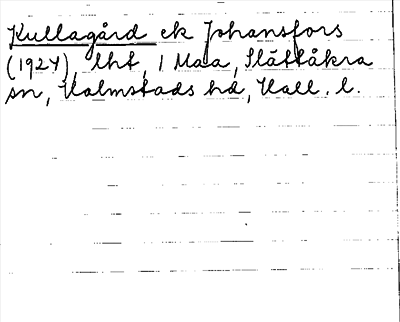 Kullagård ek Johansfors
(1927), lht, 1 Maa, Slättåkra
sn, Halmstads hd, Hall. l.